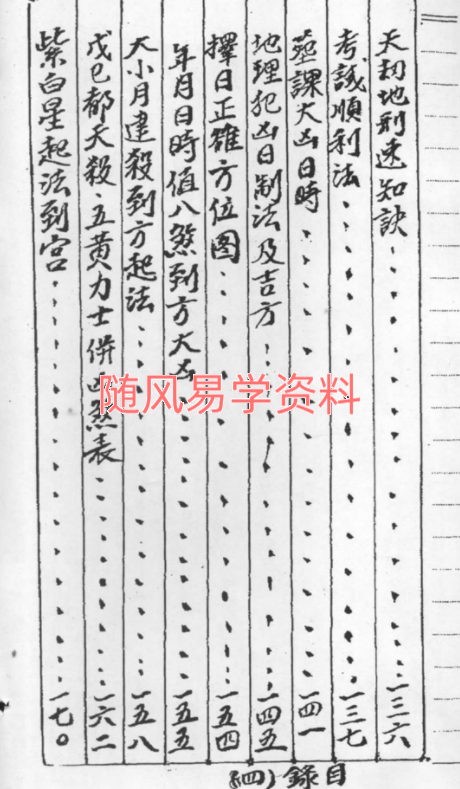 天劫地刑速知訣……一三六
考試順利法……一三七
葬課大凶日時……一四一
地理犯凶日制法及吉方……一四五
擇日正確方位图……一五四
年月日時值八煞到方大凶……一五五
大小月建殺到方起法……一五八
戊己都天殺·五黃力士併凶煞表……一六二
紫白星起法到宮……一七〇
目錄(四)
随风易学资料